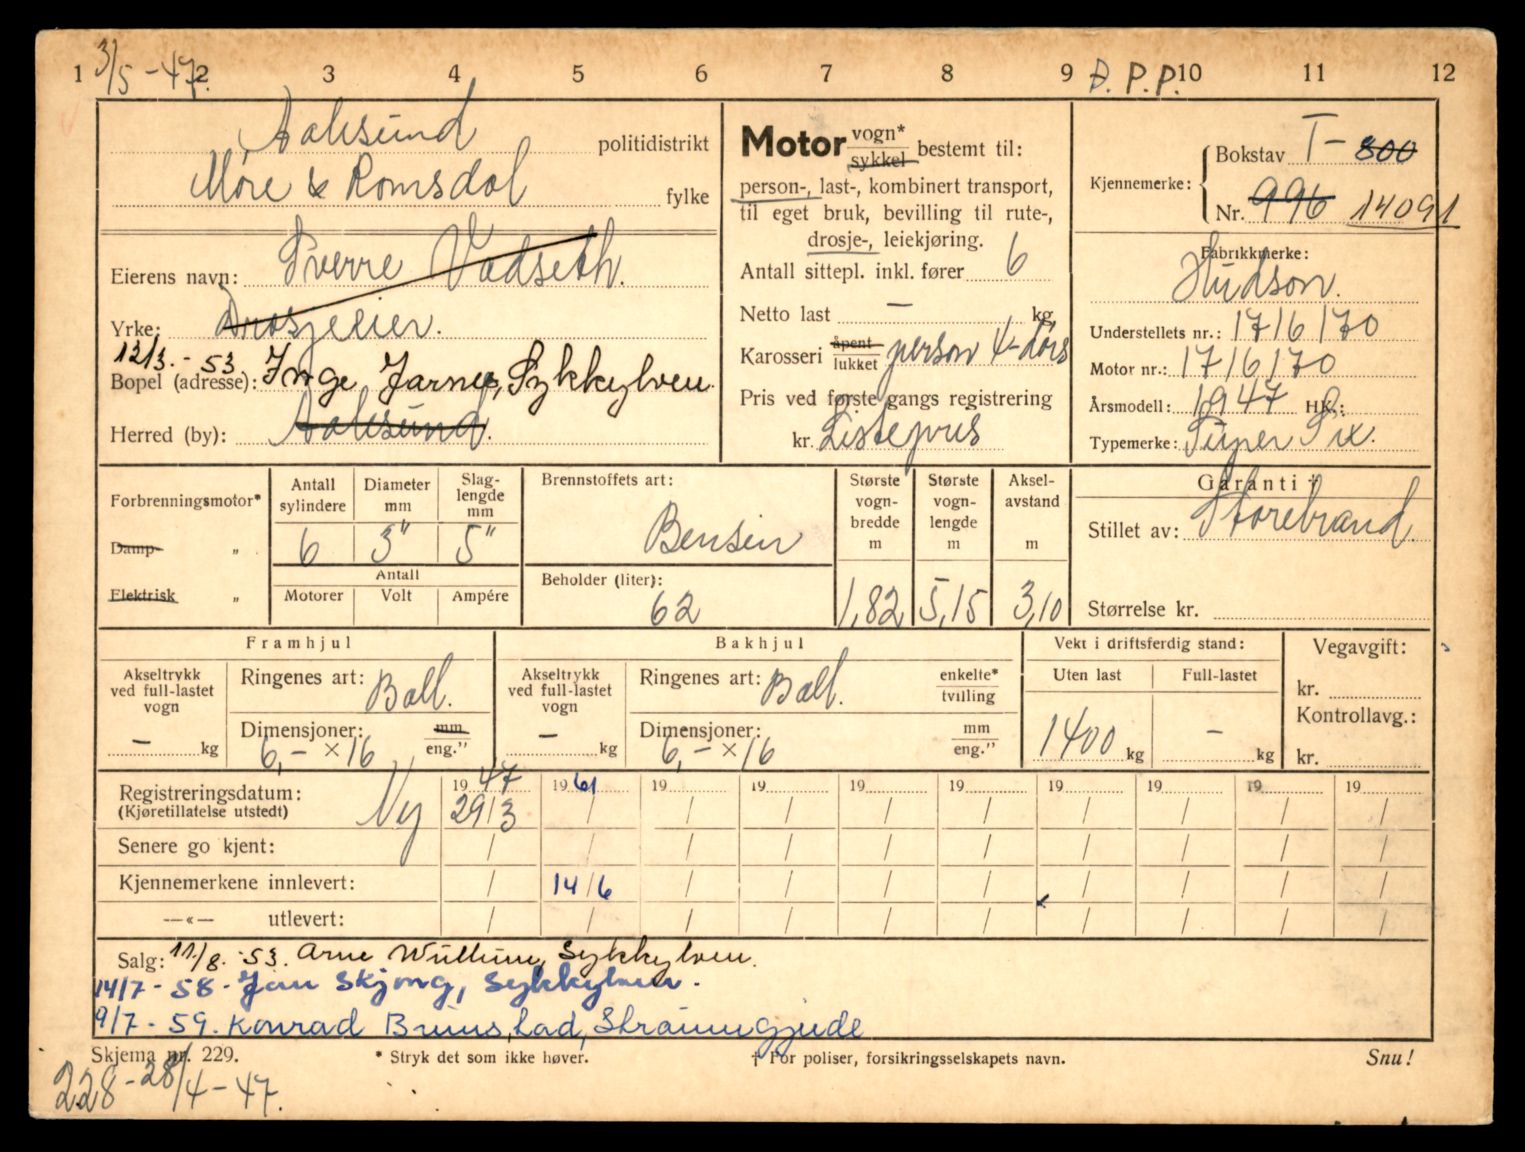 3/5-47.
1 2 3 4 5 6 7 8 9 10 11 12
D. P. P.
Aalesund politidistrikt
Møre & Romsdal fylke
Eierens navn: Sverre Vadseth.
Yrke: Drosjeeier.
12/3.-53
Bopel (adresse): Inge Jarnes, Sykkylven.
Herred (by): Aalesund.
Motor vogn* sykkel bestemt til:
person-, last-, kombinert transport,
til eget bruk, bevilling til rute-,
drosje-, leiekjøring.
Antall sittepl. inkl. fører 6
Netto last — kg.
Karosseri åpent lukket person 4-dørs
Pris ved første gangs registrering
kr. Listepris
Kjennemerke: Bokstav T- 800
Nr. 996 14091
Fabrikkmerke:
Hudson.
Understellets nr.: 1716170
Motor nr.: 1716170
Årsmodell: 1947 HK.:
Typemerke: Super Six.
Forbrenningsmotor*
Damp- „
Elektrisk „
Antall sylindere
6
Diameter mm
3"
Slag-lengde mm
5"
Antall
Motorer Volt Ampére
Brennstoffets art:
Bensin
Beholder (liter):
62
Største vogn-bredde m
1,82
Største vogn-lengde m
5,15
Aksel-avstand m
3,10
Garanti †
Stillet av: Storebrand.
Størrelse kr.
Framhjul
Akseltrykk ved full-lastet vogn
— kg
Ringenes art: Ball.
Dimensjoner: mm eng.”
6,- × 16
Bakhjul
Akseltrykk ved full-lastet vogn
— kg
Ringenes art: Ball. enkelte* tvilling
Dimensjoner: mm eng.”
6,- × 16
Vekt i driftsferdig stand:
Uten last Full-lastet
1400 kg - kg
Vegavgift:
kr.
Kontrollavg.:
kr.
Registreringsdatum:
(Kjøretillatelse utstedt)
Ny
1947 1961 19 19 19 19 19 19 19 19
29/3 / / / / / / / / /
Senere go kjent: / / / / / / / / / /
Kjennemerkene innlevert: / 14/6 / / / / / / / /
—«— utlevert: / / / / / / / / / /
Salg: 11/8.-53. Arne Wullum, Sykkylven.
14/7-58- Jan Skjong, Sykkylven.
9/7-59. Konrad Brunstad, Straumgjude
Skjema nr. 229. * Stryk det som ikke høver. † For poliser, forsikringsselskapets navn. Snu!
228-28/4-47.